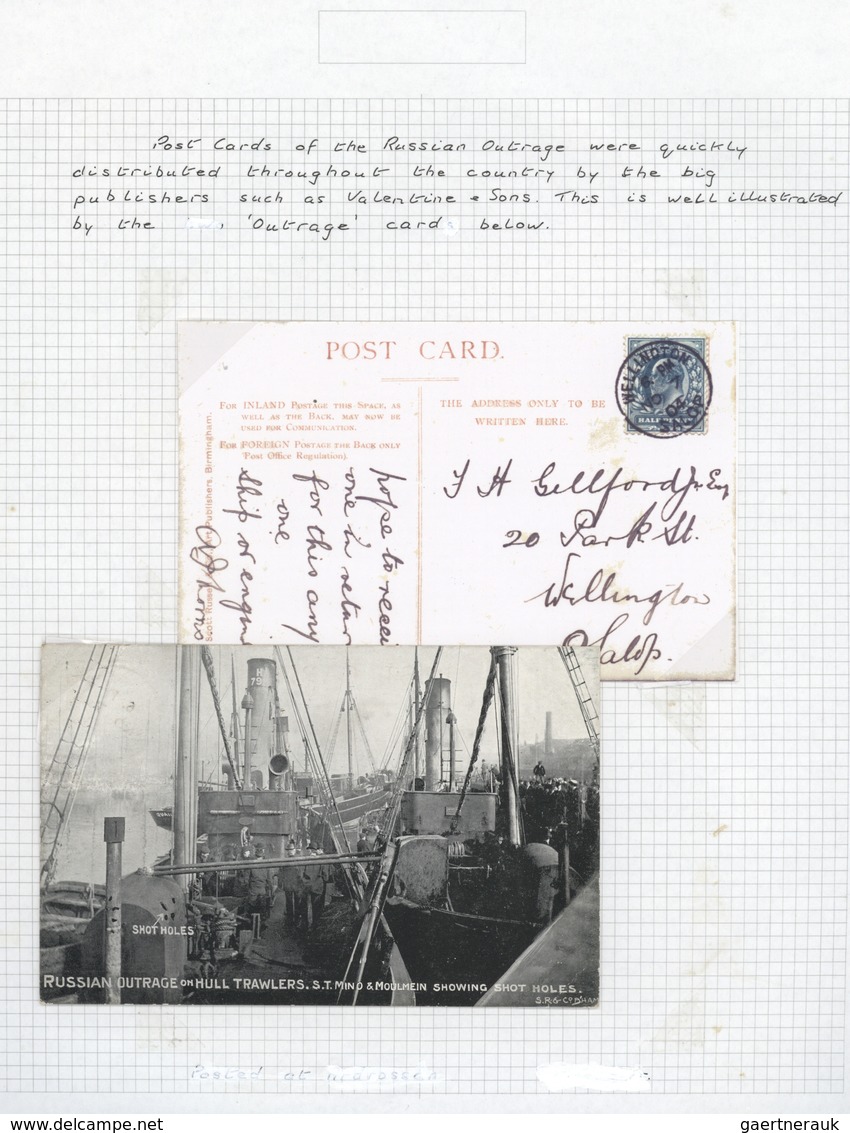 Post Cards of the Russian Outrage were quickly
distributed throughout the country by the big
publishers such as Valentine & Sons. This is well illustrated
by the 'Outrage' card below.
POST CARD.
FOR INLAND POSTAGE THIS SPACE, AS
WELL AS THE BACK, MAY NOW BE
USED FOR COMMUNICATION.
FOR FOREIGN POSTAGE THE BACK ONLY
(Post Office Regulation).
THE ADDRESS ONLY TO BE
WRITTEN HERE.
WELLINGTON
SALOP
HALFPENNY
Publishers, Birmingham.
Scott Russell
hope to recei
one in retur
for this any
one
ship or engin
20 Park St.
Wellington
Salop.
H
79
SHOT HOLES
RUSSIAN OUTRAGE ON HULL TRAWLERS. S.T. MINO & MOULMEIN SHOWING SHOT HOLES.
S.R.& Co B'HAM
Posted at
www.delcampe.net
gaertnerauk